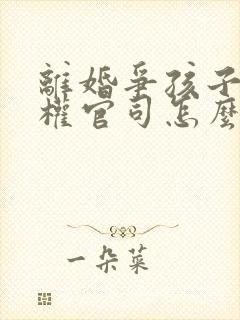 離婚爭孩子
權官司怎麼
一朵菜